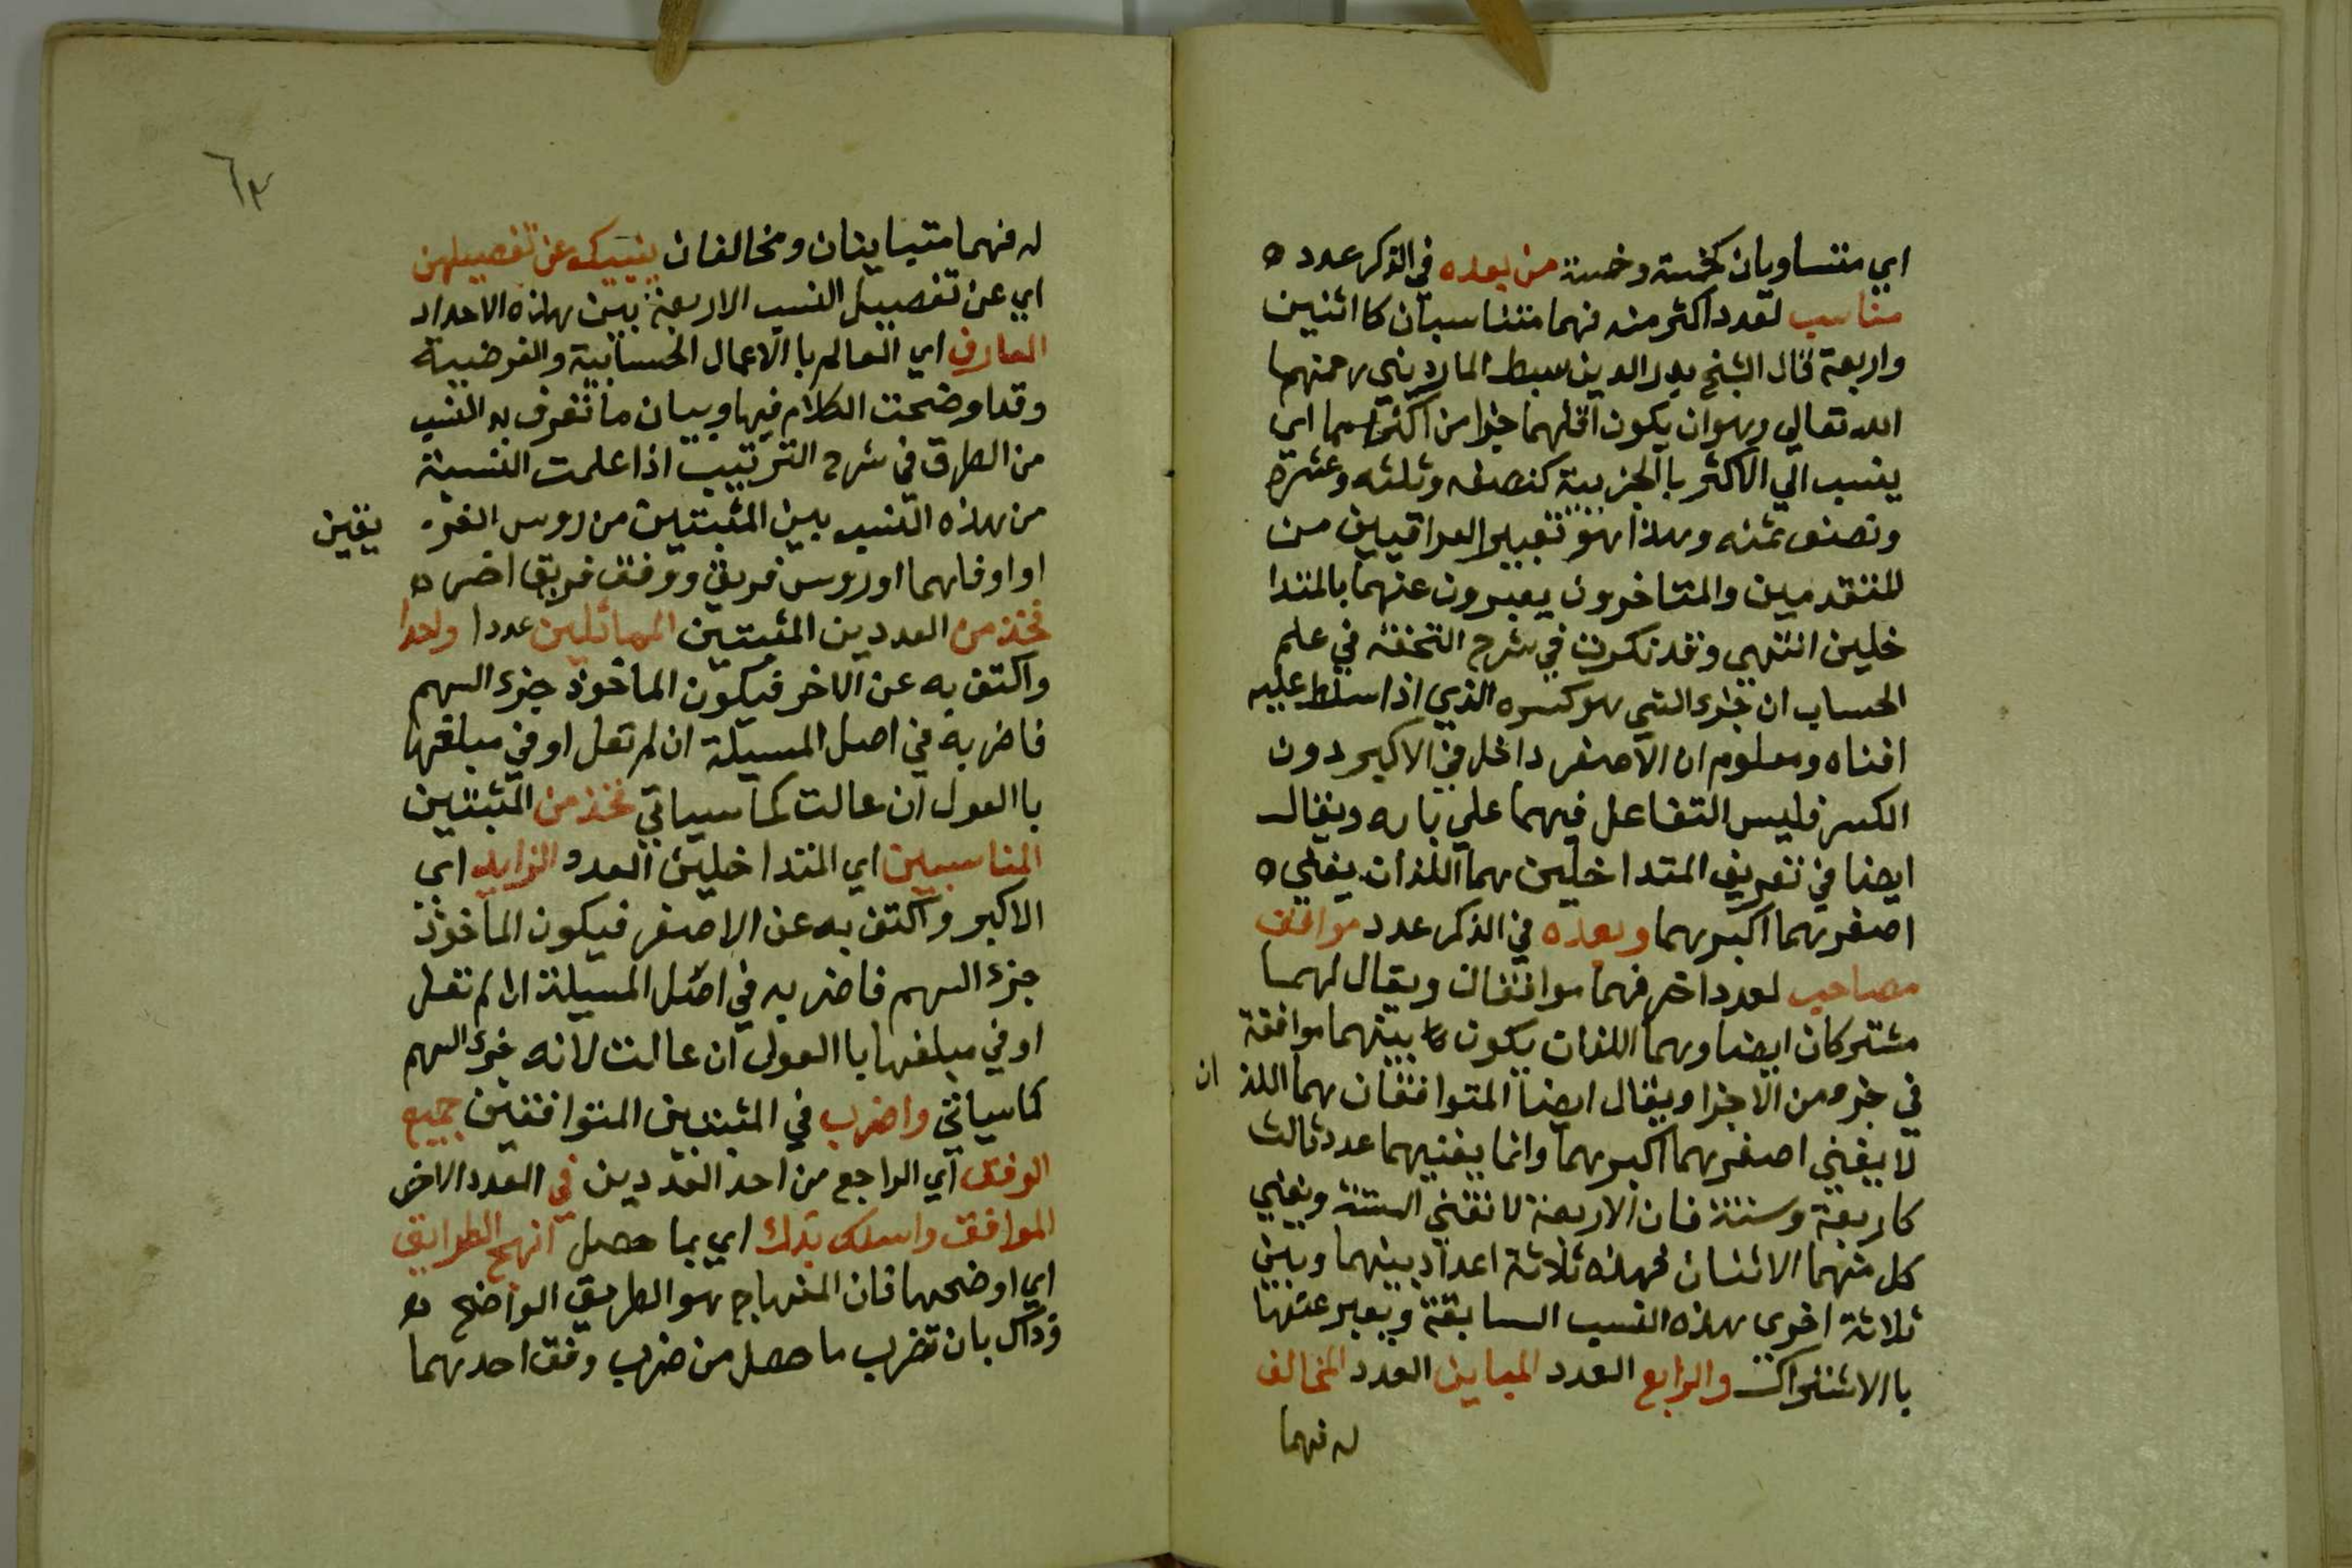 اي متساويان كخمسة وخمسة من بعده في الذكر عدد ه
مناسب لعدد اكثر منه فهما متناسبان كااثنين
واربعة قال الشيخ بدر الدين سبط المارديني رحمهما
الله تعالي وهو ان يكون اقلهما جزا من اكثرهما اي
ينسب الي الاكثر باالجزيية كنصفه وثلثه وعشره
ونصف ثمنه وهذا هو تعبير العراقيين من
المتقدمين والمتاخرون يعبرون عنهما بالمتدا
خلين انتهي وقد ذكرت في شرح التحفة في علم
الحساب ان جزء الشي هو كسره الذي اذا سلط عليه
افناه ومعلوم ان الاصغر داخل في الاكبر دون
الكسر فليس التفاعل فيهما علي بابه ويقال
ايضا في تعريف المتداخلين هما اللذان يفني ه
اصغرهما اكبرهما وبعده في الذكر عدد موافق
مصاحب لعدد اخر فهما موافقان ويقال لهما
مشتركان ايضا وهما اللذان يكون بينهما موافقة
في جزء من الاجزا ويقال ايضا المتوافقان هما اللذ ان
لا يفني اصغرهما اكبرهما وانما يفنيهما عدد ثالث
كاربعة وستة فان الاربعة لا تفني الستة ويفني
كل منهما الاثنان فهذه ثلاثة اعداد بينهما وبين
ثلاثة اخري هذه النسب السابقة ويعبر عنها
باالاشتراك والرابع العدد المباين العدد المخالف
له فهما
٦٣
له فهما متباينان ومخالفان ينبيك عن تفصيلهن
اي عن تفصيل النسب الاربعة بين هذه الاعداد
العارف اي العالم باالاعمال الحسابية والفرضية
وقد اوضحت الكلام فيها وبيان ما تعرف به النسب
من الطرق في شرح الترتيب اذا علمت النسبة
من هذه النسب بين المثبتين من روس الفر يقين
او اوفاقهما او روس فريق ووفق فريق اخر ه
فخذ من العددين المثبتين المماثلين عددا واحدا
واكتف به عن الاخر فيكون الماخوذ جزء السهم
فاضربه في اصل المسيلة ان لم تعل او في مبلغها
باالعول ان عالت كما سياتي فخذ من المثبتين
المناسبين اي المتداخلين العدد الزايد اي
الاكبر واكتف به عن الاصغر فيكون الماخوذ
جزء السهم فاضربه في اصل المسيلة ان لم تعل
او في مبلغها باالعول ان عالت لانه جزء السهم
كما سياتي واضرب في المثبتين المتوافقين جميع
الوفق اي الراجع من احد العددين في العدد الاخر
الموافق واسلك بذاك اي بما حصل انهج الطرايق
اي اوضحها فان المنهاج هو الطريق الواضح
وذاك بان تضرب ما حصل من ضرب وفق احدهما